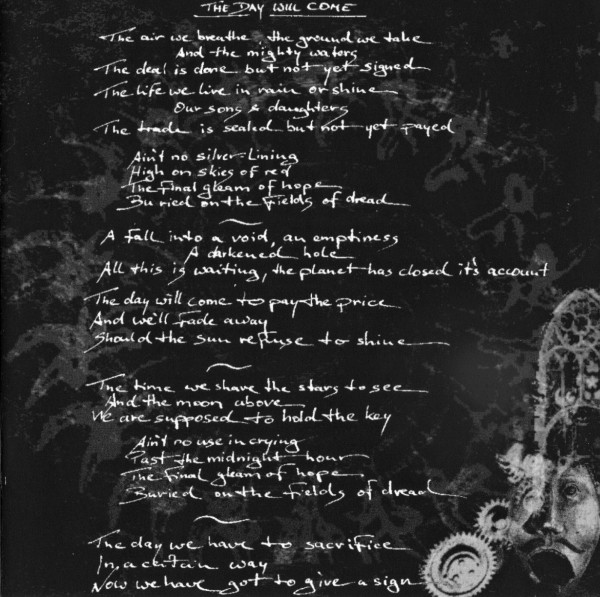 THE DAY WILL COME
The air we breathe, the ground we take
And the mighty waters
The deal is done but not yet signed
The life we live in rain or shine
Our sons & daughters
The trade is sealed but not yet payed
Ain't no silver-lining
High on skies of red
The final gleam of hope
Buried on the fields of dread
A fall into a void, an emptiness
A darkened hole
All this is waiting, the planet has closed it's account
The day will come to pay the price
And we'll fade away
Should the sun refuse to shine
The time we share the stars to see
And the moon above
We are supposed to hold the key
Ain't no use in crying
Past the midnight hour
The final gleam of hope
Buried on the fields of dread
The day we have to sacrifice
In a certain way
Now we have got to give a sign